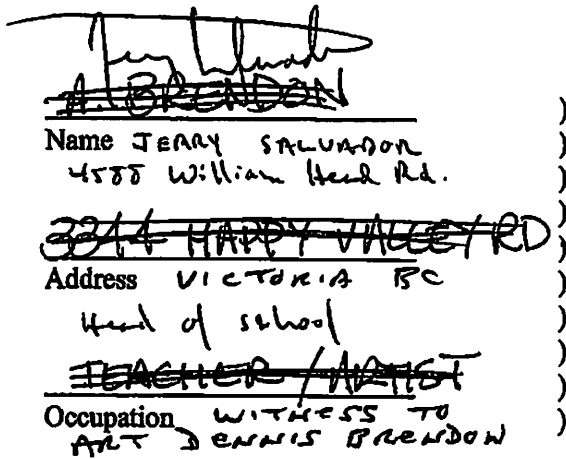 A. BRENDON
Name JERRY SALVADOR
4588 William Head Rd.
3314 HAPPY VALLEY RD
Address VICTORIA BC
Head of school
TEACHER / ARTIST
Occupation WITNESS TO
ART DENNIS BRENDON